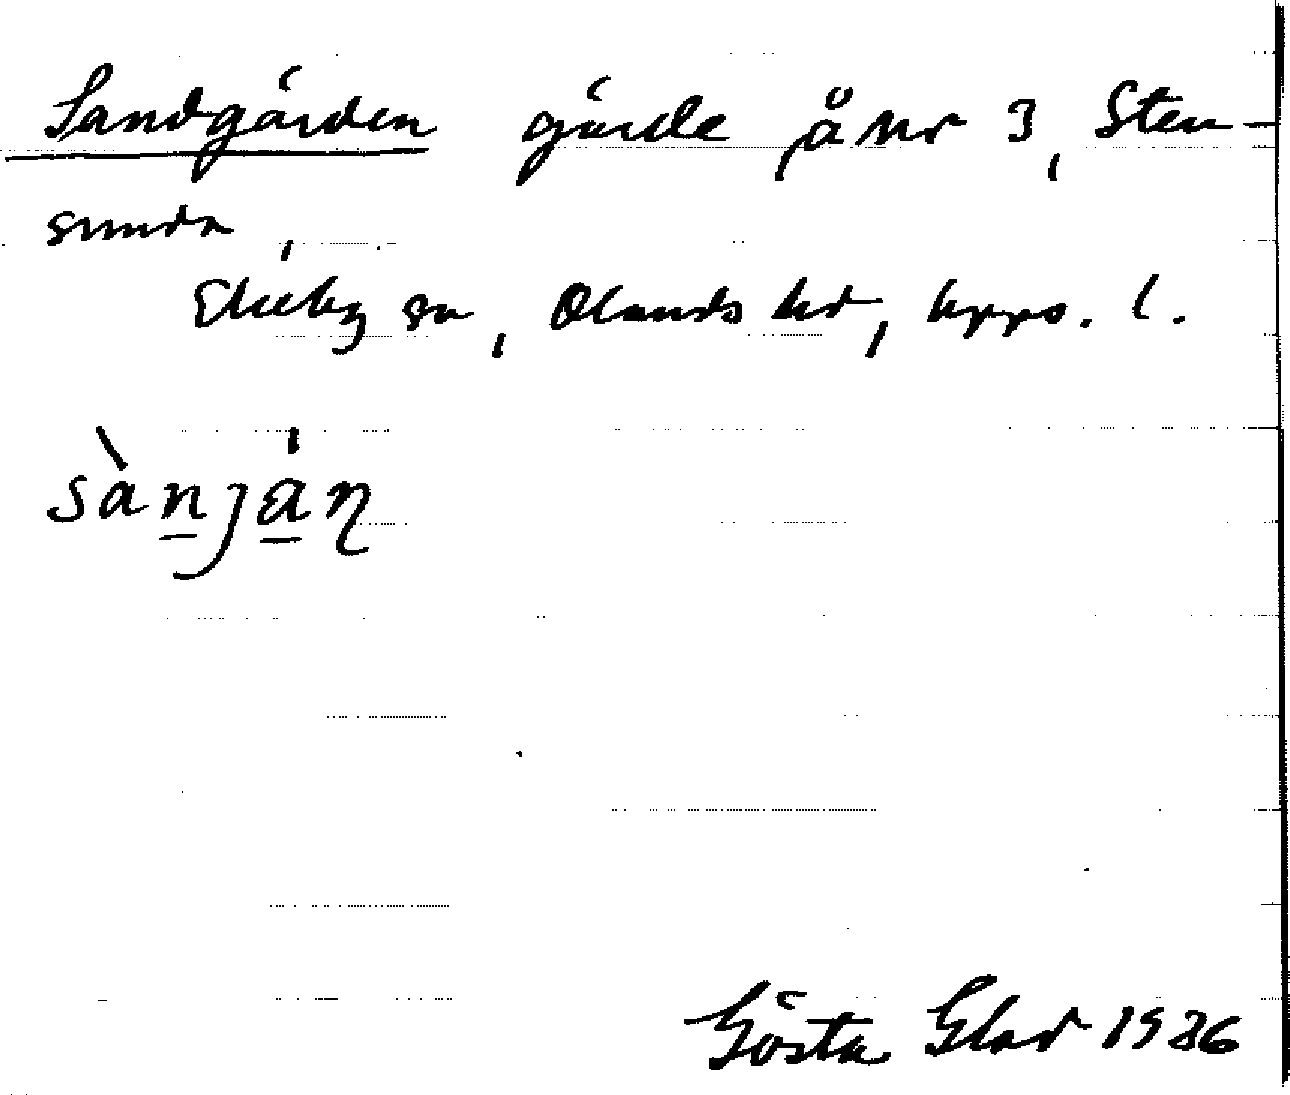 Sandgärden gärde å nr 3, Sten-
sunda,
Ekeby sn, Olands hd, Upps. l.
sànján
Gösta Glad 1936